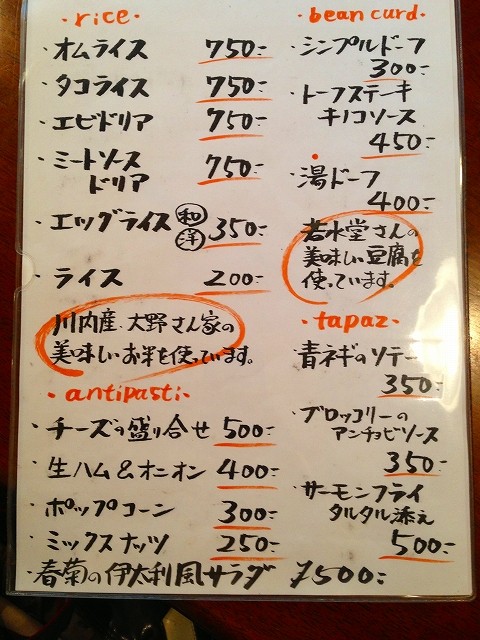 ・rice・
・オムライス 750-
・タコライス 750-
・エビドリア 750-
・ミートソース
ドリア 750-
・エッグライス 和 洋 350-
・ライス 200-
川内産、大野さん家の
美味しいお米を使っています。
・antipasti・
・チーズの盛り合せ 500-
・生ハム&オニオン 400-
・ポップコーン 300-
・ミックスナッツ 250-
・春菊の伊太利風サラダ 500-
・bean curd・
・シンプルドーフ
300-
・トーフステーキ
キノコソース
450-
・湯ドーフ
400-
若水堂さんの
美味しい豆腐を
使っています。
・tapaz・
・青ネギのソテー
350-
・ブロッコリーの
アンチョビソース
350-
・サーモンフライ
タルタル添え
500-